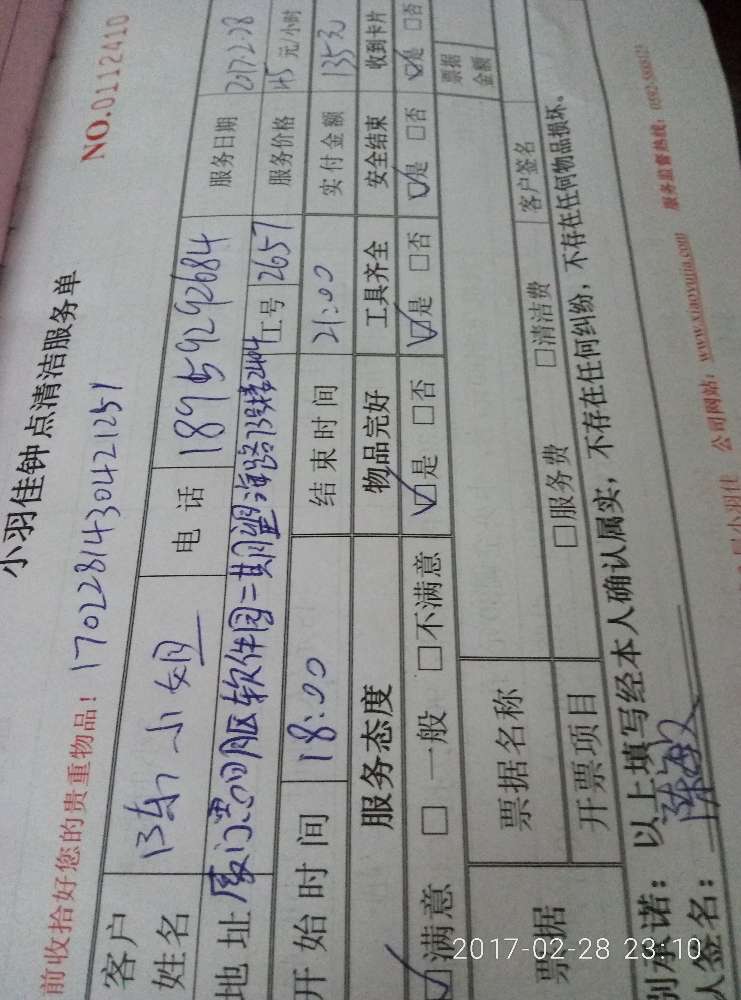 小羽佳钟点清洁服务单
NO.0112410
前收拾好您的贵重物品! 1702281430421251
客户姓名 陈小姐 电话 18959292684 服务日期 2017.2.28
地址 厦门思明区软件园二期望海路73号楼2404 工号 2657 服务价格 45 元/小时
开始时间 18:00 结束时间 21:00 实付金额 135元
服务态度 物品完好 工具齐全 安全结束 收到卡片
☑满意 □一般 □不满意 ☑是 □否 ☑是 □否 ☑是 □否 ☑是 □否
票据 票据名称 票据金额
开票项目 □服务费 □清洁费 客户签名
别承诺: 以上填写经本人确认属实, 不存在任何纠纷, 不存在任何物品损坏。
人签名: 陈
公司网站: www.xiaoyujia.com 服务监督热线: 0592-8888123
2017-02-28 23:10